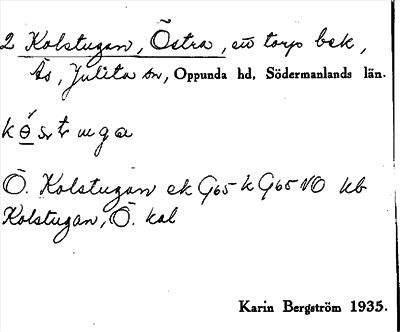 2 Kolstugan, Östra, ett torp bek,
Ås, Julita sn, Oppunda hd, Södermanlands län.
Ö. Kolstugan ek G65 k G65 NO kb
Kolstugan, Ö. kal
Karin Bergström 1935.